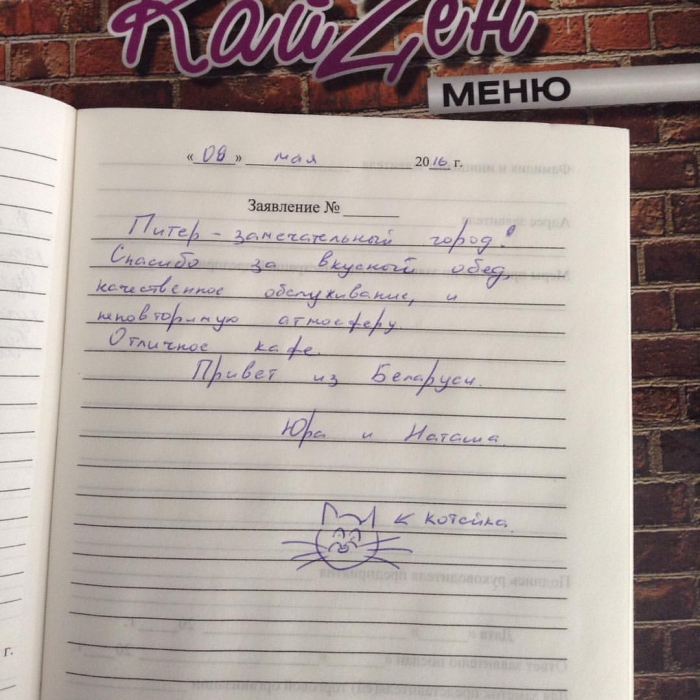 КайZен
МЕНЮ
« 09 » мая 2016 г.
Заявление №
Питер - замечательный город!
Спасибо за вкусный обед,
качественное обслуживание, и
неповторимую атмосферу.
Отличное кафе.
Привет из Беларуси.
Юра и Наташа.
котейка.
г.